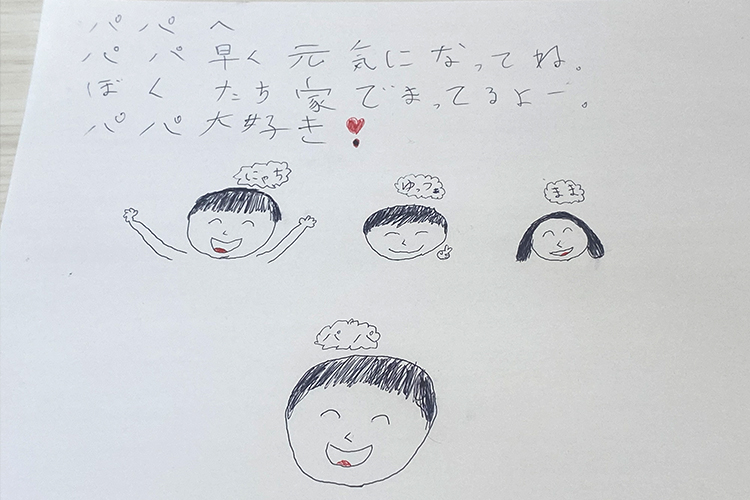 パパへ
パパ早く元気になってね。
ぼくたち家でまってるよー。
パパ大好き❤
にゃち
ゆっつぁ
まま
パパ